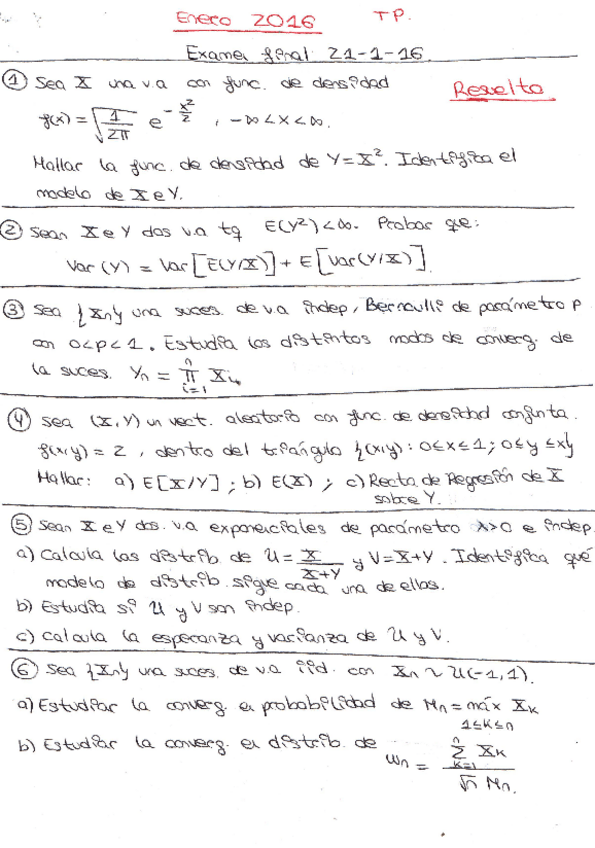 Enero 2016 TP.
Examen final 21-1-16.
Resuelto
① Sea X una v.a con func. de densidad
f(x) = √(1/2π) e^(-x²/2) , -∞<x<∞.
Hallar la func. de densidad de Y=X². Identifica el
modelo de X e Y.
② Sean X e Y dos v.a tq E(Y²)<∞. Probar que:
Var(Y) = Var[E(Y/X)] + E[Var(Y/X)].
③ Sea {Xn} una suces. de v.a indep, Bernoulli de parámetro p
con 0<p<1. Estudia los distintos modos de converg. de
la suces. Yn = ∏_{i=1}^{n} Xi.
④ Sea (X,Y) un vect. aleatorio con func. de densidad conjunta.
f(x,y) = 2, dentro del triángulo {(x,y): 0≤x≤1; 0≤y≤x}
Hallar: a) E[X/Y]; b) E(X); c) Recta de Regresión de X
sobre Y.
⑤ Sean X e Y dos v.a exponenciales de parámetro λ>0 e indep.
a) Calcula las distrib. de U = X/(X+Y) y V=X+Y. Identifica qué
modelo de distrib. sigue cada una de ellas.
b) Estudia si U y V son indep.
c) Calcula la esperanza y varianza de U y V.
⑥ Sea {Xn} una suces. de v.a iid. con Xn ~ U(-1,1).
a) Estudiar la converg. en probabilidad de Mn = máx_{1≤k≤n} Xk
b) Estudiar la converg. en distrib. de Wn = (∑_{k=1}^{n} Xk) / (√n Mn).